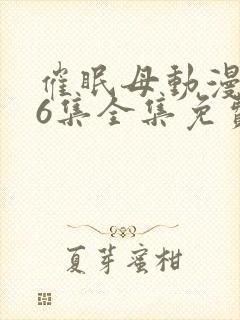 催眠母動漫
6集全集免費
夏芽蜜柑